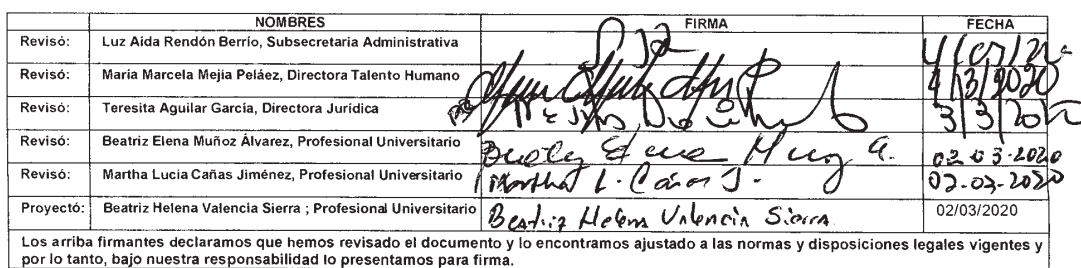 NOMBRES FIRMA FECHA
Revisó: Luz Aida Rendón Berrío, Subsecretaria Administrativa
Revisó: Maria Marcela Mejia Peláez, Directora Talento Humano 4/3/2020
Revisó: Teresita Aguilar García, Directora Jurídica 3/3/2020
Revisó: Beatriz Elena Muñoz Álvarez, Profesional Universitario 02-03-2020
Revisó: Martha Lucia Cañas Jiménez, Profesional Universitario Martha L. Cañas J. 02-03-2020
Proyectó: Beatriz Helena Valencia Sierra ; Profesional Universitario Beatriz Helena Valencia Sierra 02/03/2020
Los arriba firmantes declaramos que hemos revisado el documento y lo encontramos ajustado a las normas y disposiciones legales vigentes y
por lo tanto, bajo nuestra responsabilidad lo presentamos para firma.